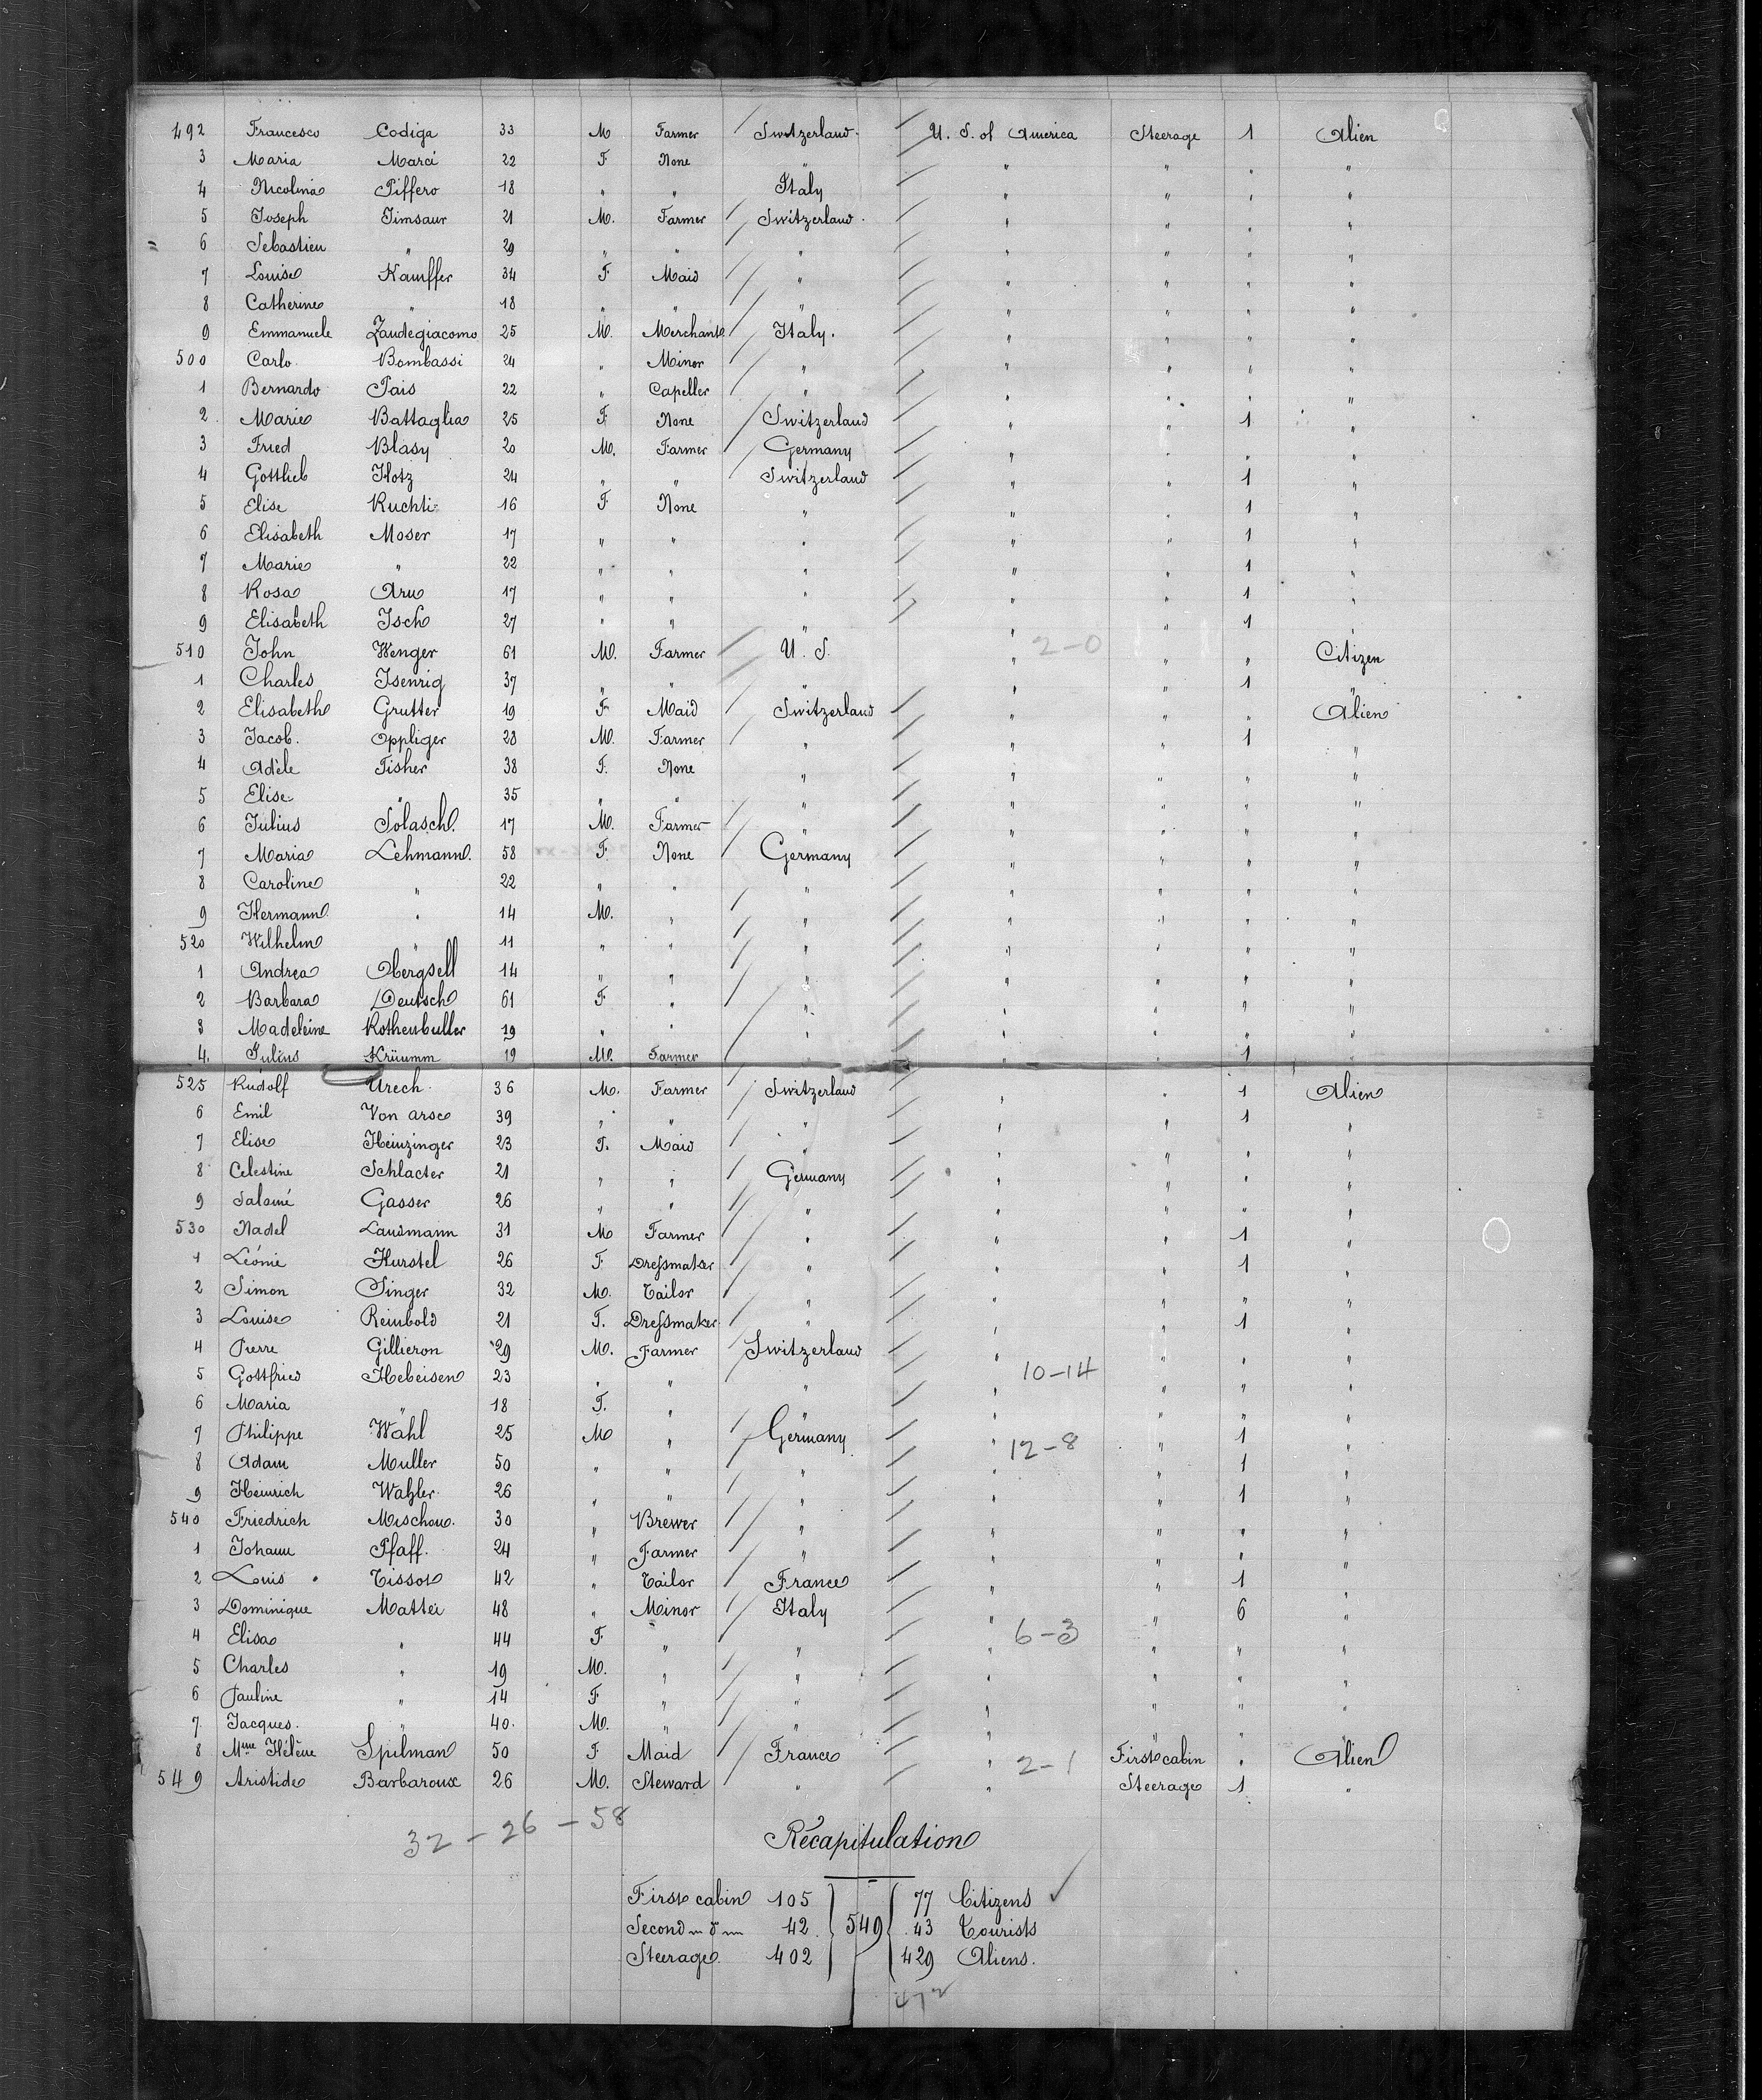 492 Francesco Codiga 33 M Farmer Switzerland U. S. of America Steerage 1 Alien
3 Maria Marci 22 F None " " " " "
4 Nicolina Piffero 18 " " Italy " " " "
5 Joseph Simsaur 21 M. Farmer Switzerland " " " "
6 Sebastien " 29 " " " " " " "
7 Louise Kauffer 34 F Maid " " " " "
8 Catherine " 18 " " " " " " "
9 Emmanuele Zaudegiacomo 25 M. Merchant Italy. " " " "
500 Carlo Bombassi 24 " Minor " " " " "
1 Bernardo Pais 22 " Capeller " " " " "
2 Marie Battaglia 25 F None Switzerland " " 1 "
3 Fried Blasy 20 M. Farmer Germany " " " "
4 Gottlieb Hotz 24 " " Switzerland " " 1 "
5 Elise Kuchti 16 F None " " " 1 "
6 Elisabeth Moser 17 " " " " " 1 "
7 Marie " 22 " " " " " 1 "
8 Rosa Aru 17 " " " " " 1 "
9 Elisabeth Isch 27 " " " " " 1 "
510 John Wenger 61 M. Farmer U. S. " 2-0 " " Citizen
1 Charles Isenrig 37 " " " " " 1 "
2 Elisabeth Grutter 19 F Maid Switzerland " " " Alien
3 Jacob. Oppliger 28 M. Farmer " " " 1 "
4 Adèle Fisher 38 F. None " " " " "
5 Elise " 35 " " " " " " "
6 Julius Solasch 17 M. Farmer " " " " "
7 Maria Lehmann. 58 F None Germany " " " "
8 Caroline " 22 " " " " " " "
9 Hermann " 14 M. " " " " " "
520 Wilhelm " 11 " " " " " " "
1 Andrea Obergsell 14 " " " " " " "
2 Barbara Deutsch 61 F " " " " " "
3 Madeleine Rothenbuller 19 " " " " " " "
4. Julius Krüumm 19 M. Farmer " " " 1 "
525 Rudolf Urech 36 M. Farmer Switzerland " " 1 Alien
6 Emil Von arse 39 " " " " " 1 "
7 Elise Heinzinger 23 F. Maid " " " " "
8 Celestine Schlacter 21 " " Germany " " " "
9 Salomé Gasser 26 " " " " " " "
530 Nadel Landmann 31 M Farmer " " " 1 "
1 Léonie Hurstel 26 F. Dressmaker " " " 1 "
2 Simon Singer 32 M. Tailor " " " " "
3 Louise Reinbold 21 F. Dressmaker " " " 1 "
4 Pierre Gillieron 29 M. Farmer Switzerland " " " "
5 Gottfried Hebeisen 23 " " " " 10-14 " " "
6 Maria " 18 F. " " " " " "
7 Philippe Wahl 25 M " Germany " 12-8 " 1 "
8 Adam Muller 50 " " " " " 1 "
9 Heinrich Wahler 26 " " " " " 1 "
540 Friedrich Mischou. 30 " Brewer " " " " "
1 Johann Pfaff. 24 " Farmer " " " " "
2 Louis Tissot 42 " Tailor France " " 1 "
3 Dominique Mattei 48 " Minor Italy " " 6 "
4 Elisa " 44 F " " " 6-3 " " "
5 Charles " 19 M. " " " " " "
6 Pauline " 14 F " " " " " "
7. Jacques. " 40. M. " " " " " "
8 Mme Hélène Spilman 50 F Maid France " 2-1 First cabin " Alien
549 Aristide Barbaroux 26 M. Steward " " Steerage 1 "
32-26-58
Récapitulation
First cabin 105 77 Citizens
Second " d " 42 549 43 Tourists
Steerage. 402 429 Aliens.
472